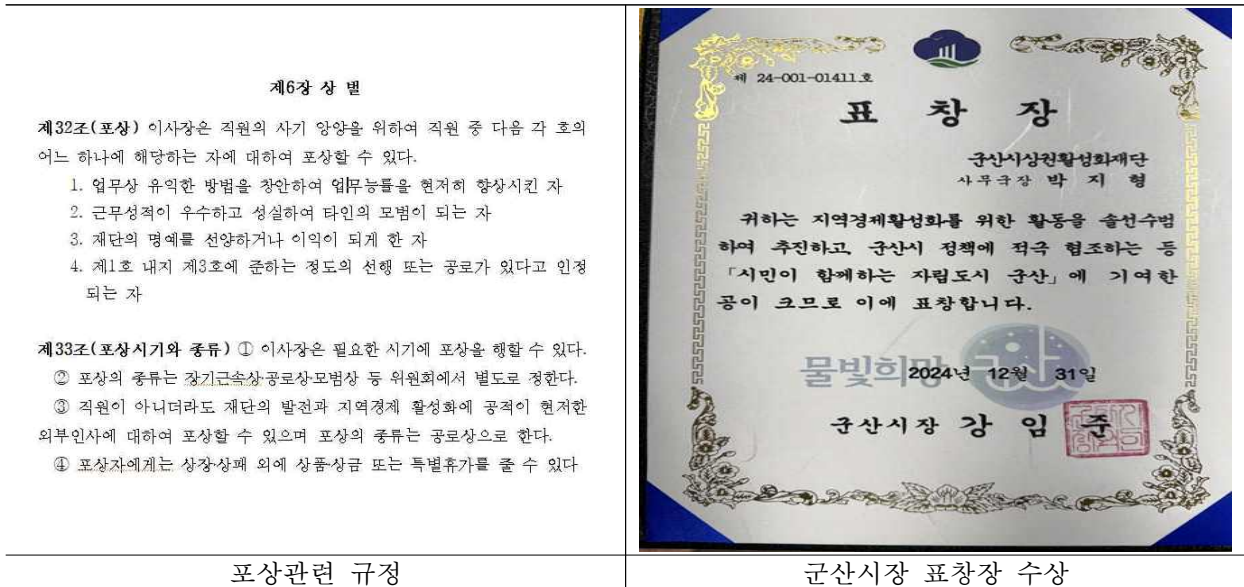 제6장 상 벌
제32조(포상) 이사장은 직원의 사기 앙양을 위하여 직원 중 다음 각 호의
어느 하나에 해당하는 자에 대하여 포상할 수 있다.
1. 업무상 유익한 방법을 창안하여 업무능률을 현저히 향상시킨 자
2. 근무성적이 우수하고 성실하여 타인의 모범이 되는 자
3. 재단의 명예를 선양하거나 이익이 되게 한 자
4. 제1호 내지 제3호에 준하는 정도의 선행 또는 공로가 있다고 인정
되는 자
제33조(포상시기와 종류) ① 이사장은 필요한 시기에 포상을 행할 수 있다.
② 포상의 종류는 장기근속상·공로상·모범상 등 위원회에서 별도로 정한다.
③ 직원이 아니더라도 재단의 발전과 지역경제 활성화에 공적이 현저한
외부인사에 대하여 포상할 수 있으며 포상의 종류는 공로상으로 한다.
④ 포상자에게는 상장·상패 외에 상품·상금 또는 특별휴가를 줄 수 있다
포상관련 규정
제 24-001-01411호
표 창 장
군산시상권활성화재단
사무국장 박 지 형
귀하는 지역경제활성화를 위한 활동을 솔선수범
하여 추진하고, 군산시 정책에 적극 협조하는 등
「시민이 함께하는 자립도시 군산」에 기여한
공이 크므로 이에 표창합니다.
물빛희망 군산
2024년 12월 31일
군산시장 강 임 준
군산시장 표창장 수상